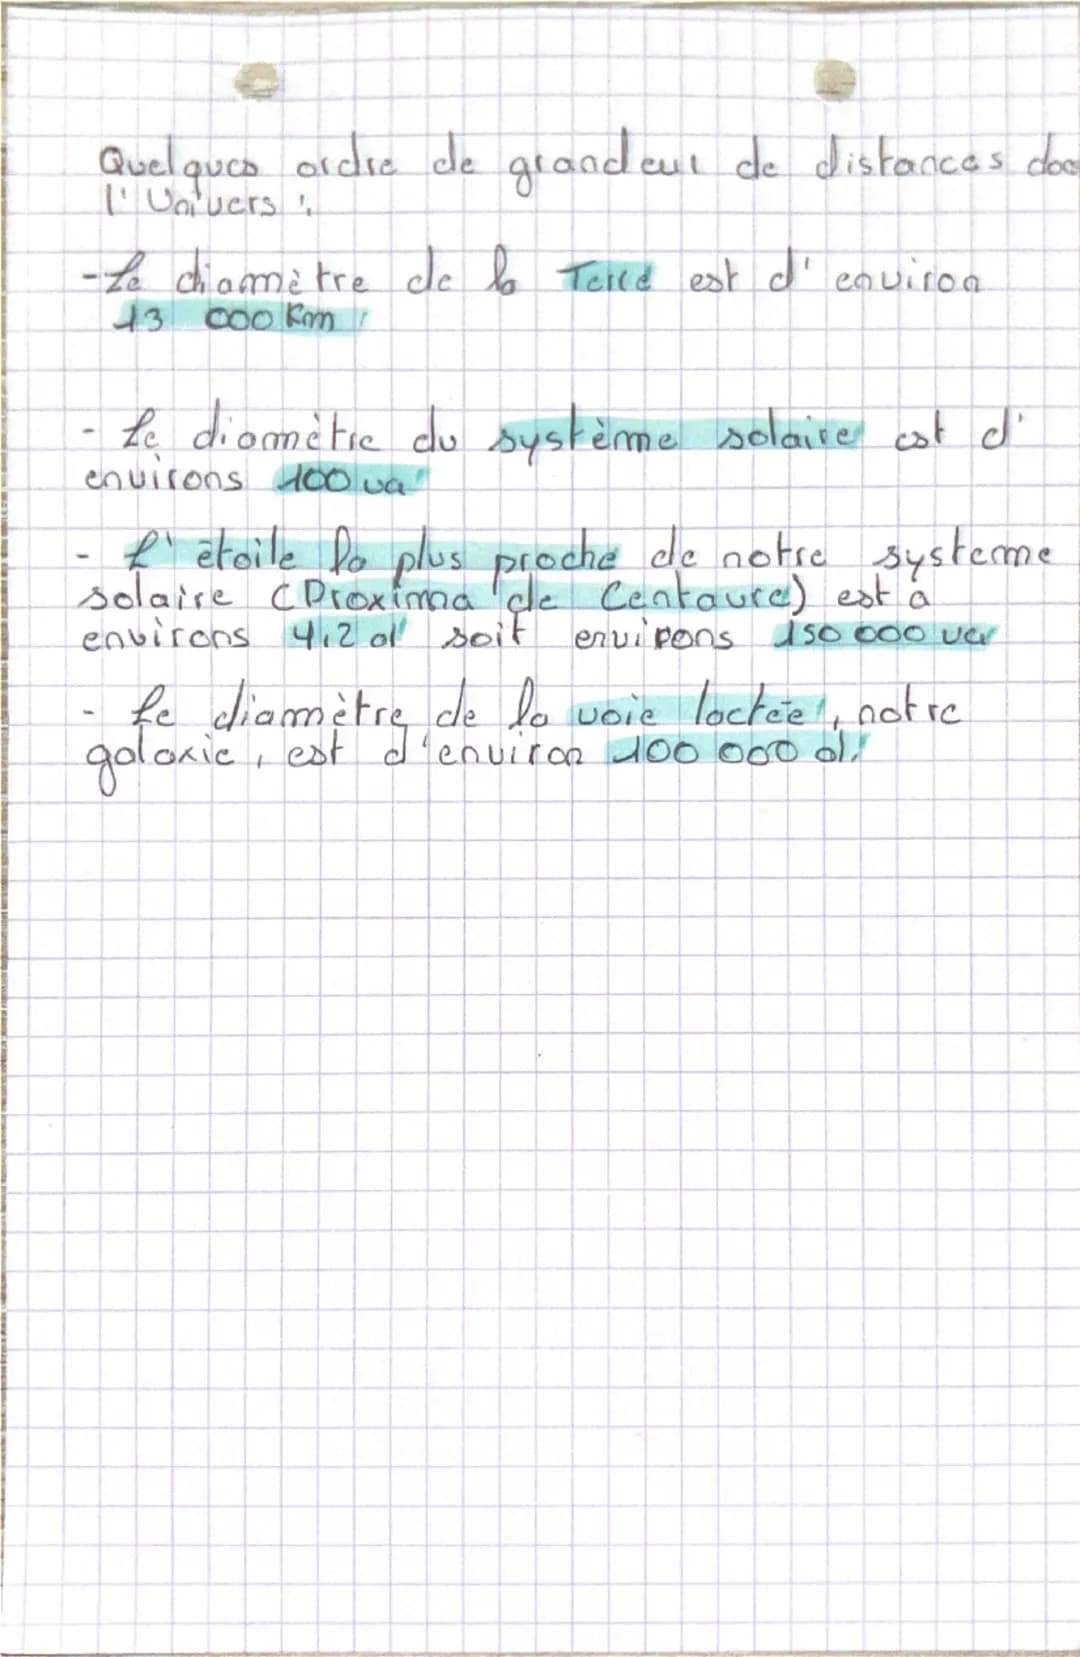 Quelques ordre de grandeur de distances dos
l'Univers :
- Le diamètre de la Terre est d'environ
13 000 Km ;
- Le diamètre du système solaire est d'
environs 100 ua
- L'étoile la plus proche de notre systeme
solaire (Proxima de Centaure) est a
environs 4,2 al soit environs 150 000 ua
- Le diamètre de la voie lactée, notre
galaxie, est d'environ 100 000 al.